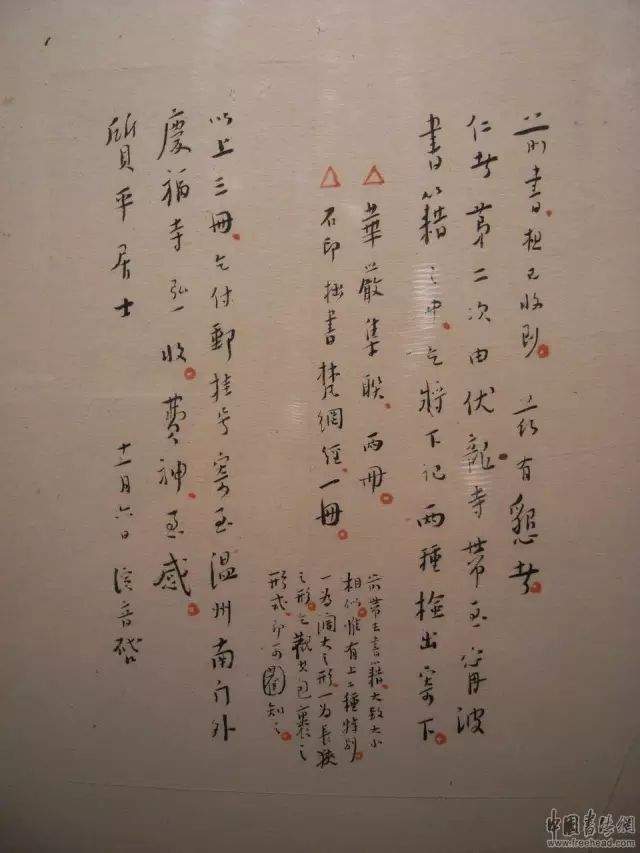 前書想已收到。茲有懇者
仁者第二次由伏龍寺帶至甯波
書籍之中、乞將下記兩種檢出寄下。
△華嚴集聯、兩冊。
△石印拙書梵網經、一冊。
前帶去書籍、大致大小
相似。惟有上二種特別。
一為闊大之形一為長狹
之形。乞觀其包裹之
形式、即可知之。
以上三冊、乞付郵掛号寄至溫州南门外
慶福寺弘一收。費神、至感。
質平居士 十一月六日 演音啓
中国書法網
www.freehead.com